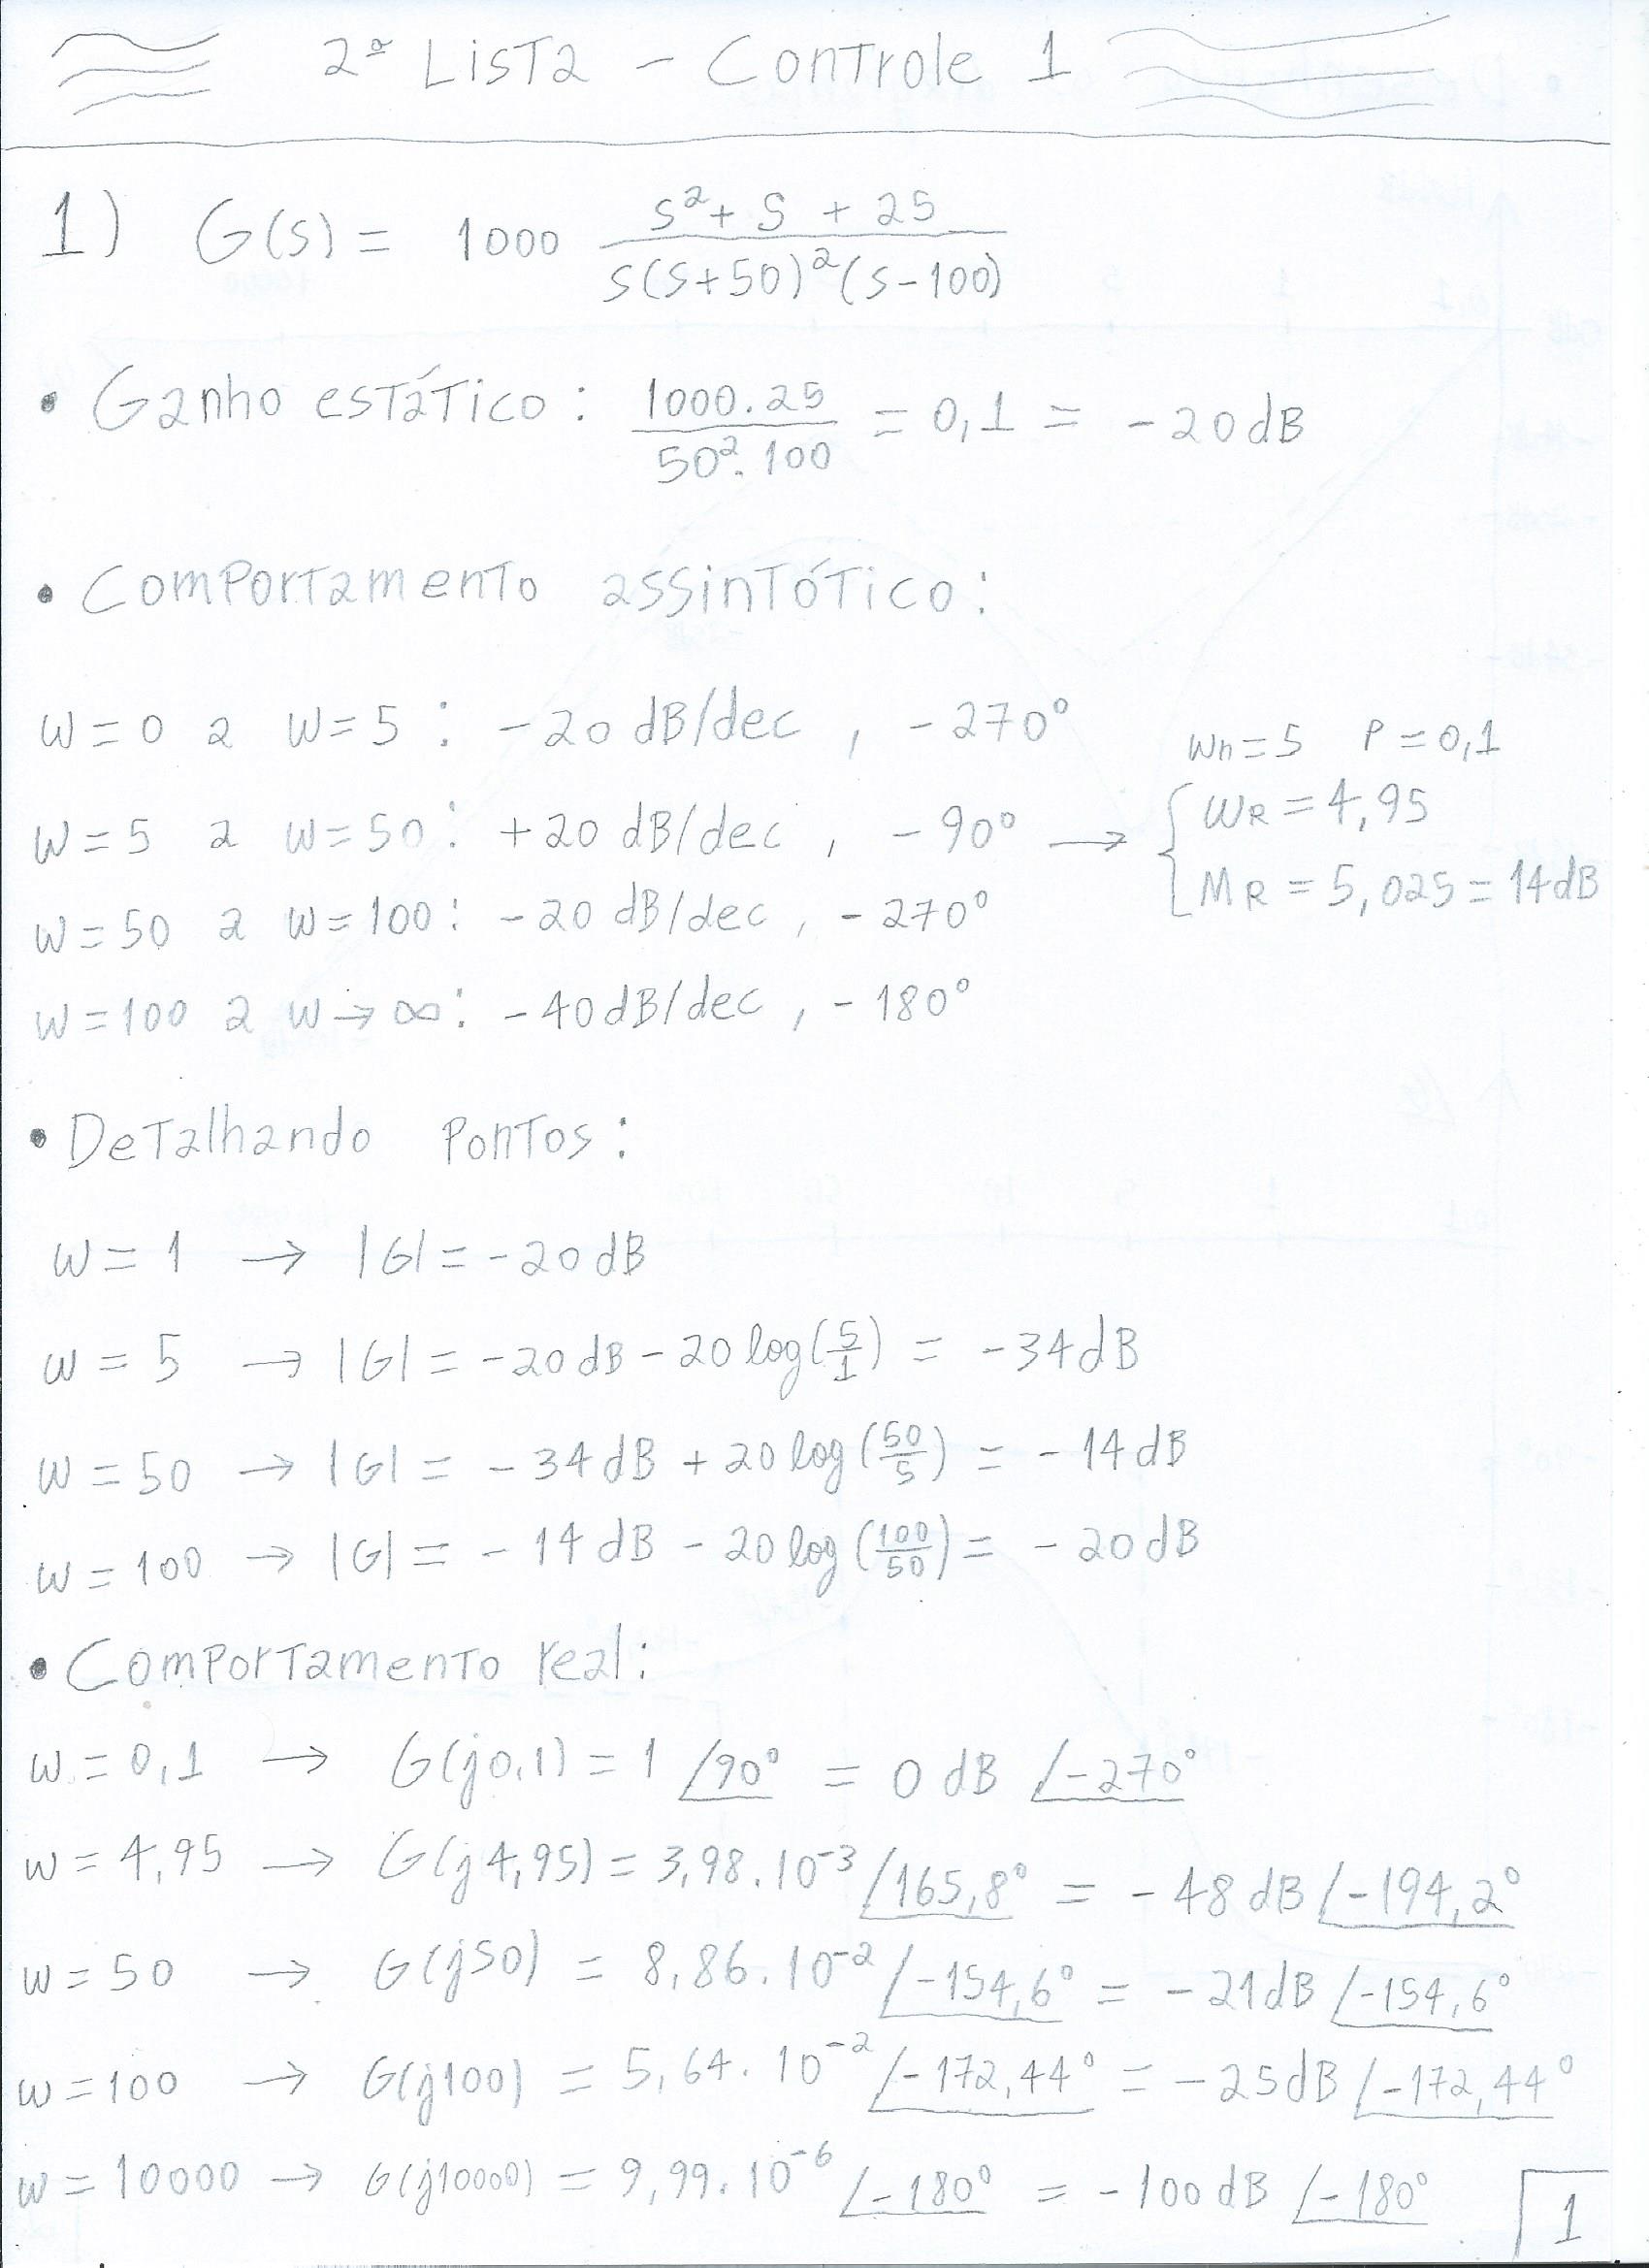 2ª Lista - Controle 1
1) G(s) = 1000 (s² + s + 25)/(s(s+50)²(s-100))
• Ganho estático: (1000.25)/(50².100) = 0,1 = -20dB
• Comportamento assintótico:
w=0 a w=5: -20 dB/dec, -270°
wn=5 P=0,1
w=5 a w=50: +20 dB/dec, -90° → { wR = 4,95
MR = 5,025 = 14dB
w=50 a w=100: -20 dB/dec, -270°
w=100 a w→∞: -40dB/dec, -180°
• Detalhando pontos:
w = 1 → |G| = -20dB
w = 5 → |G| = -20dB - 20log(5/1) = -34dB
w = 50 → |G| = -34dB + 20log(50/5) = -14dB
w = 100 → |G| = -14dB - 20log(100/50) = -20dB
• Comportamento real:
w = 0,1 → G(j0,1) = 1 ∠90° = 0 dB ∠-270°
w = 4,95 → G(j4,95) = 3,98.10⁻³ ∠165,8° = -48 dB ∠-194,2°
w = 50 → G(j50) = 8,86.10⁻² ∠-154,6° = -21dB ∠-154,6°
w = 100 → G(j100) = 5,64.10⁻² ∠-172,44° = -25dB ∠-172,44°
w = 10000 → G(j10000) = 9,99.10⁻⁶ ∠-180° = -100dB ∠-180°
1